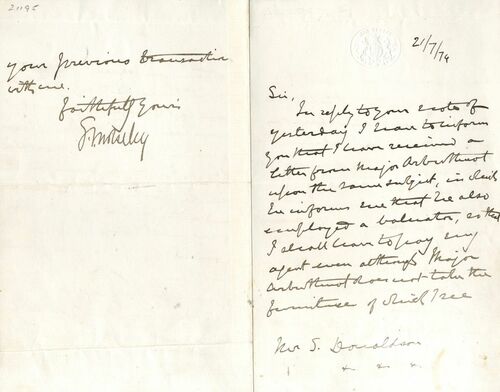 21/7/74
Sir,
In reply to your note of
yesterday I have to inform
you that I have received a
letter from Major Arbuthnot
upon the same subject, in which
he informs me that he also
employed a valuator, so that
I shall have to pay my
agent even although Major
Arbuthnot does not take the
furniture of which I see
Mr S. Donaldson
your previous transaction
with me.
faithfully yours